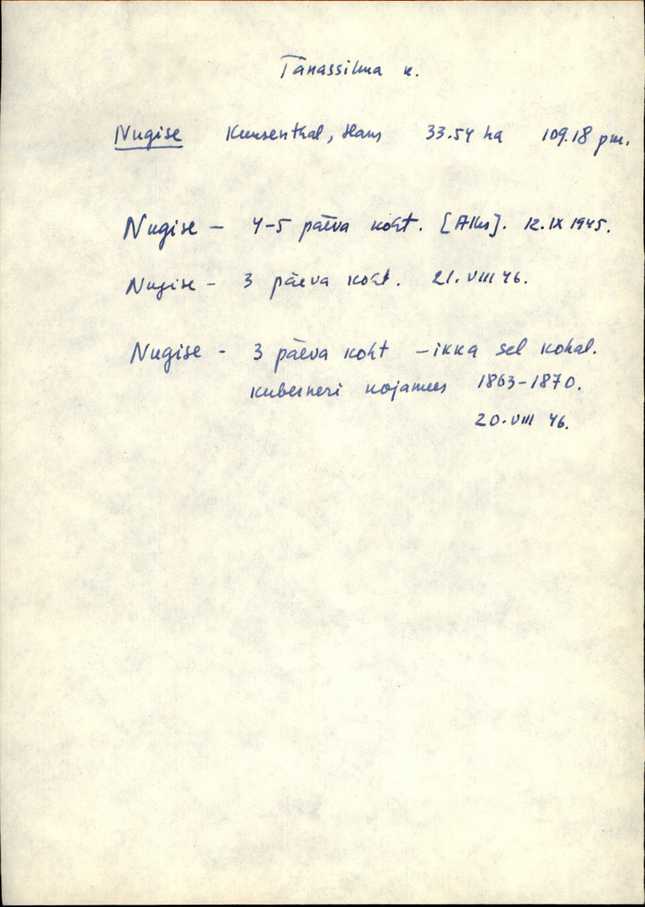 Tänassilma k.
Nugise Kunsenthal, Hans 33.54 ha 109.18 pm.
Nugise – 4-5 päeva koht. [Alks]. 12.IX 1945.
Nugise – 3 päeva koht. 21.VIII 46.
Nugise - 3 päeva koht – ikka sel kohal.
kuberneri kojamees 1863-1870.
20.VIII 46.